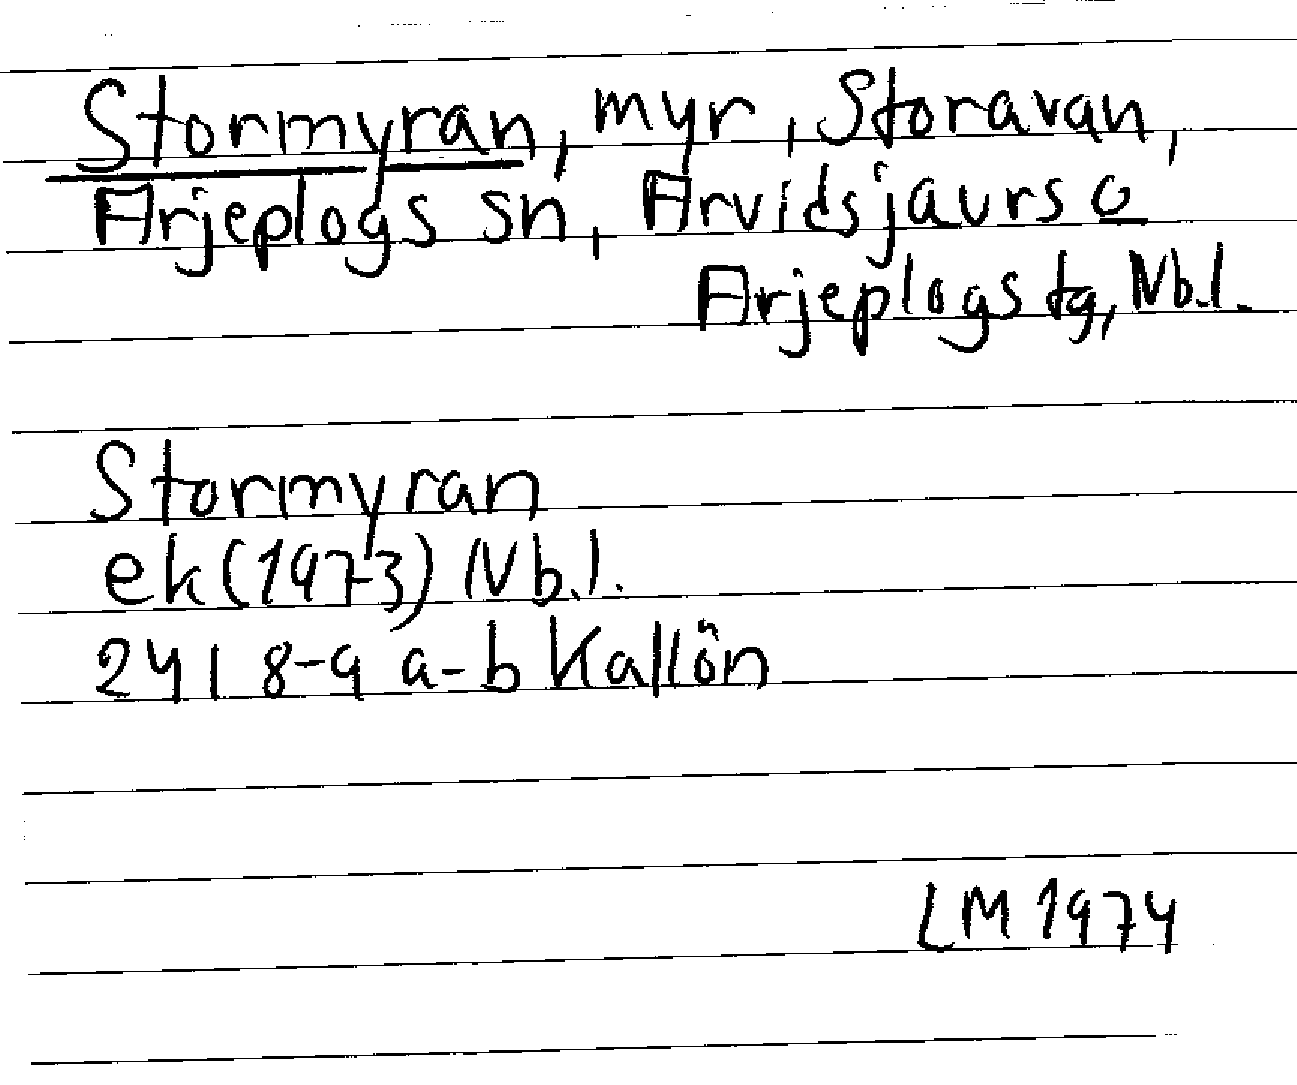 Stormyran, myr, Storavan,
Arjeplogs sn, Arvidsjaurs o
Arjeplogs tg, Nb.l.
Stormyran
ek (1973) Nb.l.
241 8-9 a-b Kallön
LM 1974